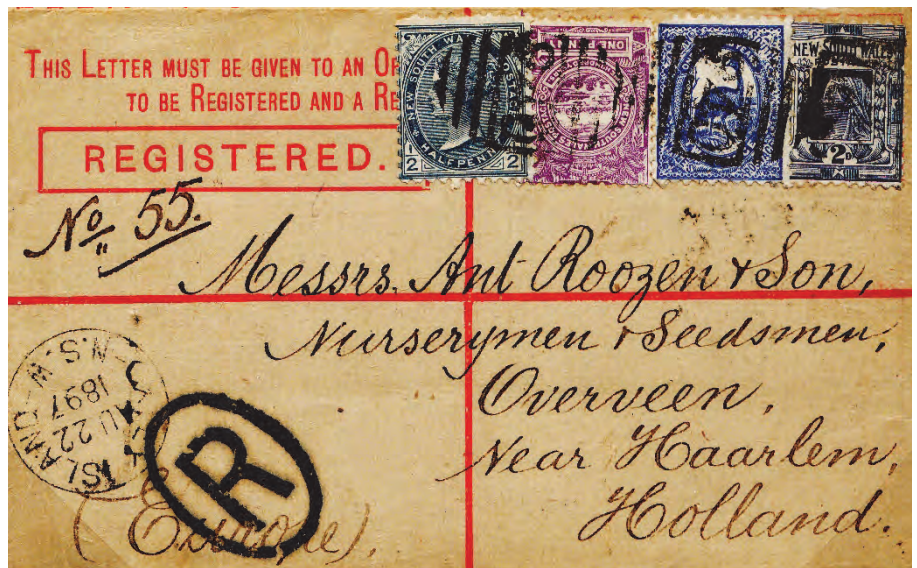 THIS LETTER MUST BE GIVEN TO AN OF
TO BE REGISTERED AND A RE
REGISTERED.
NEW SOUTH WALES POSTAGE
HALFPENNY
1/2 1/2
ONE PENNY
NEW SOUTH WALES
NEW SOUTH WALES
2D
No. 55.
Messrs. Ant Roozen & Son,
Nurserymen & Seedsmen,
Overveen,
Near Haarlem,
Holland.
(Europe).
R
ISLAND N.S.W.
22
1897